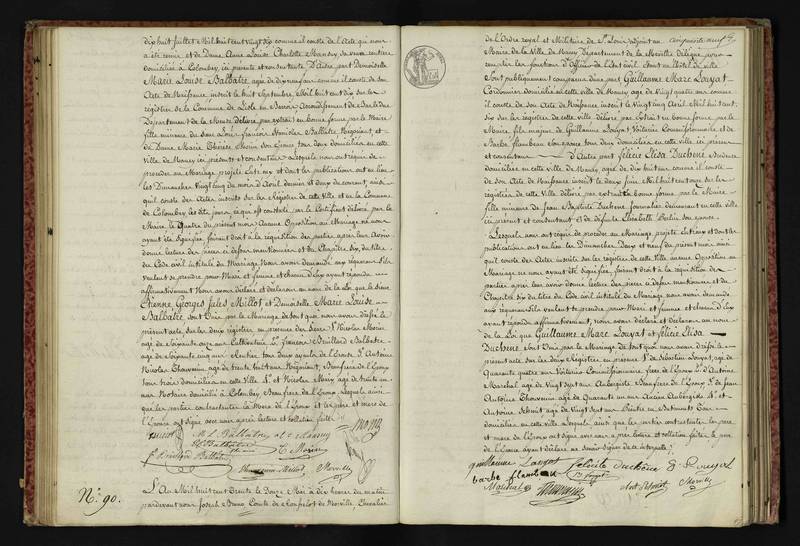 dix huit Juillet Mil huit cent vingt dix comme il conste de l'Acte qui nous
a été remis, et de Dame Anne Louise Charlotte Mansuy sa veuve rentière
domiciliée à Colombey, ici présente et consentante D'Autre part Demoiselle
Marie Louise Balbatre, agée de dix neuf ans comme il conste de son
Acte de Naissance inscrit le huit Septembre, Mil huit cent dix sur les
registres de la Commune de
Département de la Meuse délivré par extrait en bonne forme par le Maire
fille mineure du Sieur Louis François Stanislas Balbatre Négociant, et
de Dame Marie Thérèse Morin son Epouse tous deux domiciliés en cette
Ville de Nancy ici présents et consentants Lesquels nous ont requis de
procéder au Mariage projeté entre eux et dont les publications ont eu lieu
les Dimanches vingt cinq du mois d'Avril dernier et deux du courant, ainsi
qu'il conste des Actes inscrits sur les Registres de cette Ville et la Commune
de Colombey les dits jours, ce qui est constaté par le Certificat délivré par le
Maire, le quatre du présent mois Aucune Opposition au Mariage ne nous
ayant été signifiée, faisant droit à la réquisition des parties après leur Avoir
donné lecture des pièces ci dessus mentionnées et du Chapitre Six, du titre
du Code civil intitulé du Mariage Nous avons demandé aux époux s'ils
veulent se prendre pour Mari et femme et chacun d'Eux ayant répondu
affirmativement Nous avons déclaré et déclarons au nom de la Loi que le Sieur
Etienne Georges Jules Millot et Demoiselle Marie Louise
Balbatre, sont Unis par le Mariage de tout quoi nous avons dressé le
présent acte sur les deux registres, en présence des Sieurs Nicolas Morin
agé de Soixante onze ans Cultivateur, François Brillard Balbatre
agé de Soixante cinq ans Rentier tous deux ayeuls de l'Epouse Antoine
Nicolas Chauvenin agé de trente huit ans Négociant, Beau frère de l'Epoux
tous trois domiciliés en cette Ville Et Nicolas Mary agé de trente un
ans Notaire domicilié à Colombey, Beau frère de l'Epoux Lesquels ainsi
que les parties contractantes la Mère de l'Epoux et les père et mère de
l'Epouse ont signé avec nous après lecture et collation faite
Millot M L Balbatre
Morin
N.° 90.
L'An Mil huit cent trente le Douze Mai à dix heures du matin
pardevant nous Joseph Bruno, Comte de Morville, Chevalier
de l'Ordre royal et Militaire de S.t Louis adjoint au
Maire de la Ville de Nancy Département de la Meurthe délégué pour
remplir les fonctions d'Officier de l'état civil. Sont en l'hôtel de ville
Sont publiquement comparus d'une part Guillaume Marc Louyat
Cordonnier domicilié en cette ville de Nancy, agé de Vingt quatre ans comme
il conste de son Acte de Naissance inscrit le vingt cinq Avril Mil huit cent
six sur les registres de cette ville délivré par extrait en bonne forme par le
Maire, fils majeur de Guillaume Louyat Voiturier Commissionnaire, et de
Barbe flambeau son épouse domiciliés en cette ville ici présents
et consentants D'Autre part félicie Elisa Duchene, Brodeuse
domiciliée en cette ville de Nancy, agée de dix huit ans comme il conste
de son Acte de Naissance inscrit le deux Juin Mil huit cent onze sur les
registres de cette Ville délivré par extrait en bonne forme par le Maire
fille mineure de Jean Baptiste Duchene, Journalier demeurant en cette ville
ici présent et consentant Et de défunte Elisabeth son épouse.
Lesquels nous ont requis de procéder au Mariage projeté entre eux et dont les
publications ont eu lieu les Dimanches Deux et neuf du présent mois ainsi
qu'il conste des Actes inscrits sur les registres de cette ville aucune Opposition au
Mariage ne nous ayant été signifiée, faisant droit à la réquisition des
parties après leur avoir donné lecture des pièces ci dessus mentionnées et du
Chapitre Six du titre du Code civil intitulé du Mariage, nous avons demandé
aux époux s'ils veulent se prendre pour Mari et femme et chacun d'Eux
ayant répondu affirmativement, nous avons déclaré et déclarons au nom
de la Loi que Guillaume Marc Louyat et félicie Elisa
Duchene sont Unis par le Mariage de tout quoi nous avons dressé le
présent acte sur les deux Registres en présence de Sébastien Louyat, agé de
Quarante quatre ans Voiturier Commissionnaire, frère de l'Epoux Antoine
Marchal agé de Vingt Sept ans Aubergiste Beau frère de l'Epoux Jean
Antoine Chauvenin agé de Quarante un ans Ancien Aubergiste Et
Antoine Schmit agé de Vingt Sept ans Peintre en Batiments
domiciliés en cette ville Lesquels, ainsi que les parties contractantes les père
et mère de l'Epoux ont signé avec nous après lecture et collation faite le père
de l'Epouse ayant déclaré ne savoir signer de ce interpellé
guillaume Louyat félicie Duchêne
barbe flambeau
Marchal